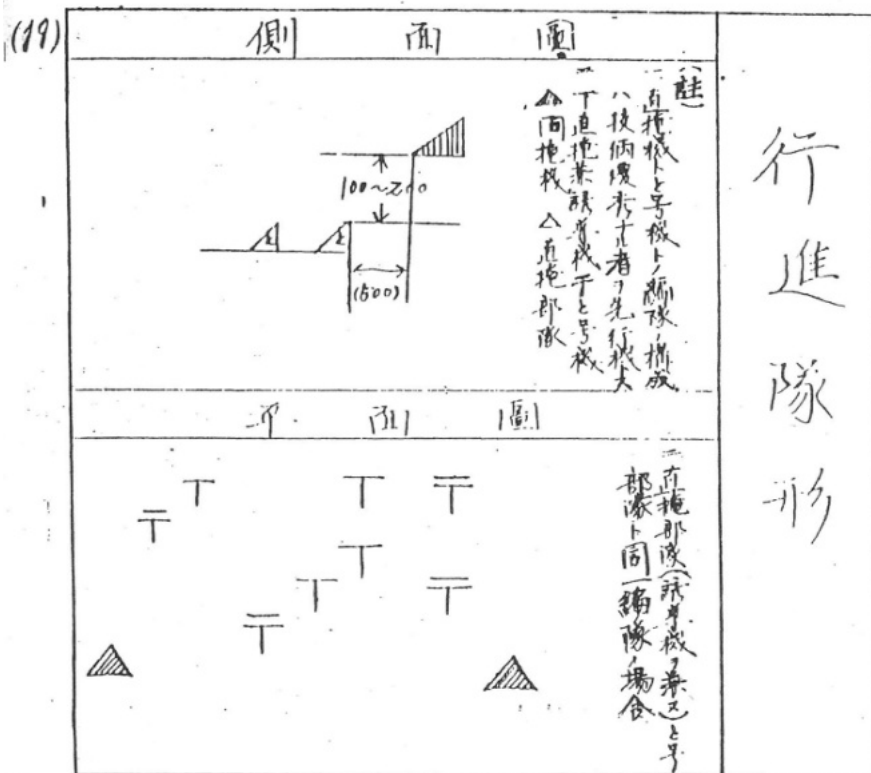 (19)
行進隊形
側面圖
(註)
一 直掩機ト と号機トノ編隊ノ構成
ハ技倆優秀ナル者ヲ先行機ト
二 丅直掩兼誘導機 〒と号機
間掩機 △直掩部隊
100~200
(500)
平面圖
二 直掩部隊(誘導機ヲ兼ス)と号
部隊ト同一編隊ノ場合